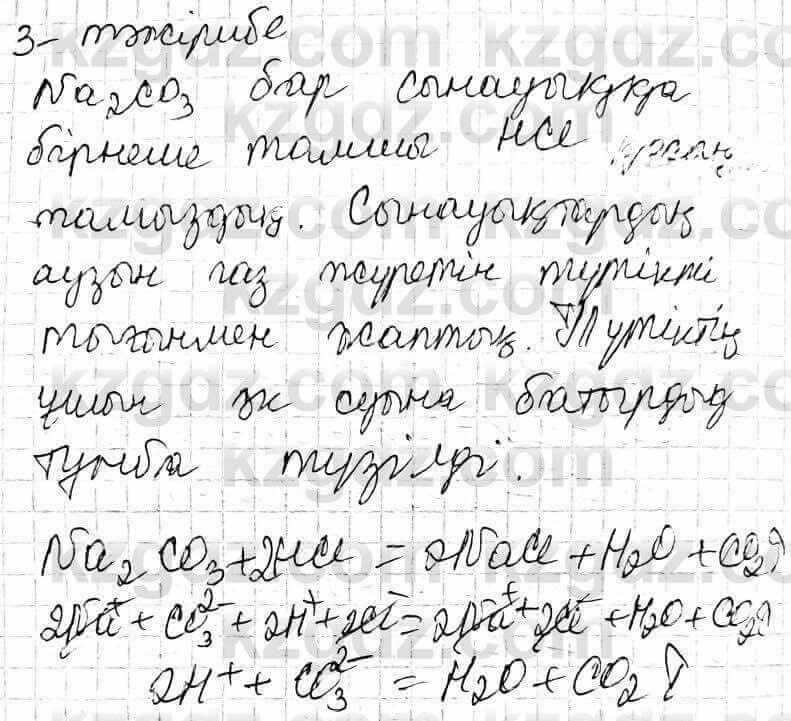 3- тәжірибе
Na₂CO₃ бар сынауыққа
бірнеше тамшы HCl
тамыздық. Сынауықтардың
аузын газ жүретін түтікті
тығынмен жаптық. Түтіктің
ұшын әк суына батырдық
тұнба түзілді.
Na₂CO₃+2HCl = 2NaCl + H₂O + CO₂↑
2Na⁺ + CO₃²⁻ + 2H⁺ + 2Cl⁻ = 2Na⁺ + 2Cl⁻ + H₂O + CO₂↑
2H⁺ + CO₃²⁻ = H₂O + CO₂↑